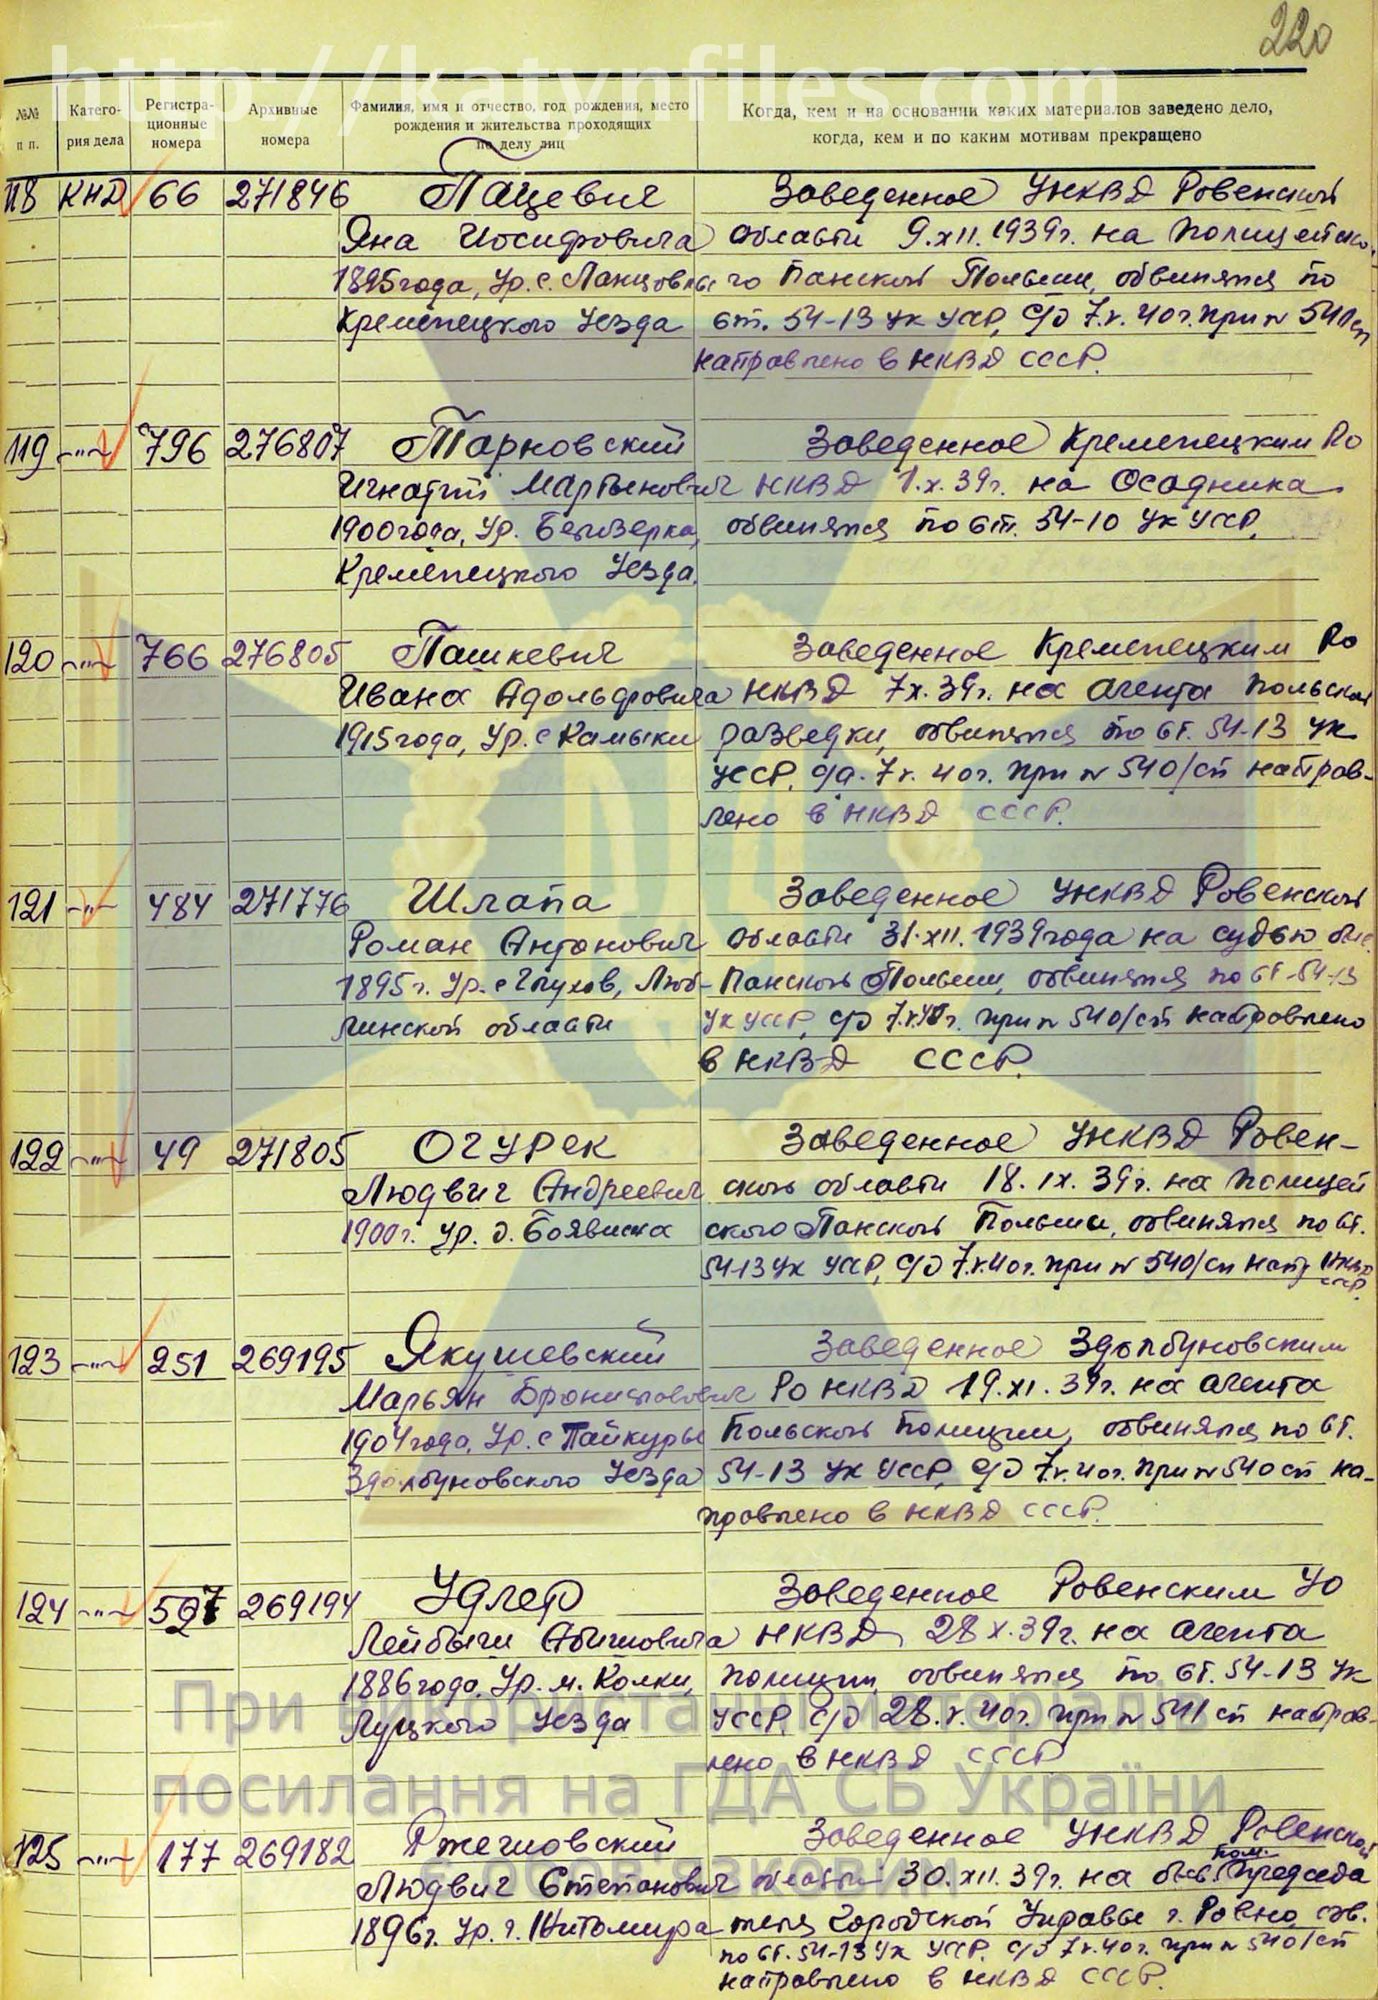 220
http://katynfiles.com
№№ п п.
Катего-
рия дела
Регистра-
ционные
номера
Архивные
номера
Фамилия, имя и отчество, год рождения, место
рождения и жительства проходящих
по делу лиц
Когда, кем и на основании каких материалов заведено дело,
когда, кем и по каким мотивам прекращено
118 КНД 66 271846 Пацевич
Яна Иосифовича
1895 года, Ур. с.
Кременецкого Уезда
Заведенное УНКВД Ровенской
области 9.XII.1939г. на Полицейско-
го Панской Польши, обвинялся по
ст. 54-13 УК УССР, с/д 7.V.40г. при № 540 сп
направлено в НКВД СССР.
119 -"- 796 276807 Тарновский
Игнатий Мартынович
1900 года, Ур. Белозерка,
Кременецкого Уезда.
Заведенное Кременецким РО
НКВД 1.X.39г. на Осадника
обвинялся по ст. 54-10 УК УССР.
120 -"- 766 276805 Пашкевич
Ивана Адольфовича
1915 года, Ур. с Камыки
Заведенное Кременецким РО
НКВД 7X.39г. на агента польской
разведки, обвинялся по ст. 54-13 УК
УССР, с/д. 7V.40г. при № 540/сп направ-
лено в НКВД СССР.
121 -"- 484 271776 Шлапа
Роман Антонович
1895г. Ур. с Люб-
линской области
Заведенное УНКВД Ровенской
области 31.XII.1939 года на судью быв.
Панской Польши, обвинялся по ст-54-13
УК УССР, с/д 7.V.40г. при № 540/сп направлено
в НКВД СССР.
122 -"- 49 271805 ОГУРЕК
Людвиг Андреевич
1900г. Ур. д. Боявиска
Заведенное УНКВД Ровен-
ской области 18.IX.39г. на Полицей
ского Панской Польши, обвинялся по ст.
54-13 УК УССР, с/д 7.V.40г. при № 540/сп напр НКВД
СССР.
123 -"- 251 269195 Якушевский
Марьян Брониславович
1904 года, Ур. с Тайкуры
Здолбуновского Уезда
Заведенное Здолбуновским
РО НКВД 19.XI.39г. на агента
Польской Полиции, обвинялся по ст.
54-13 УК УССР, с/д 7V.40г. при № 540 сп на-
правлено в НКВД СССР.
124 -"- 527 269194 Удлер
Лейбыш Абишовича
1886 года, Ур. м. Колки,
Луцкого Уезда
Заведенное Ровенским УО
НКВД 28 X.39г. на агента
полиции, обвинялся по ст. 54-13 УК
УССР, с/д 28.V.40г. при № 541 сп направ-
лено в НКВД СССР
125 -"- 177 269182 Ржегловский
Людвиг Степанович
1896г. Ур. г. Житомира
Заведенное УНКВД Ровенской
области 30.XII.39г. на быв. пом. Председа
теля Городской Управы г. Ровно, обв.
по ст. 54-13 УК УССР. с/д 7V.40г. при № 540/сп
направлено в НКВД СССР.
При використанні матеріалів
посилання на ГДА СБ України
є обов'язковим